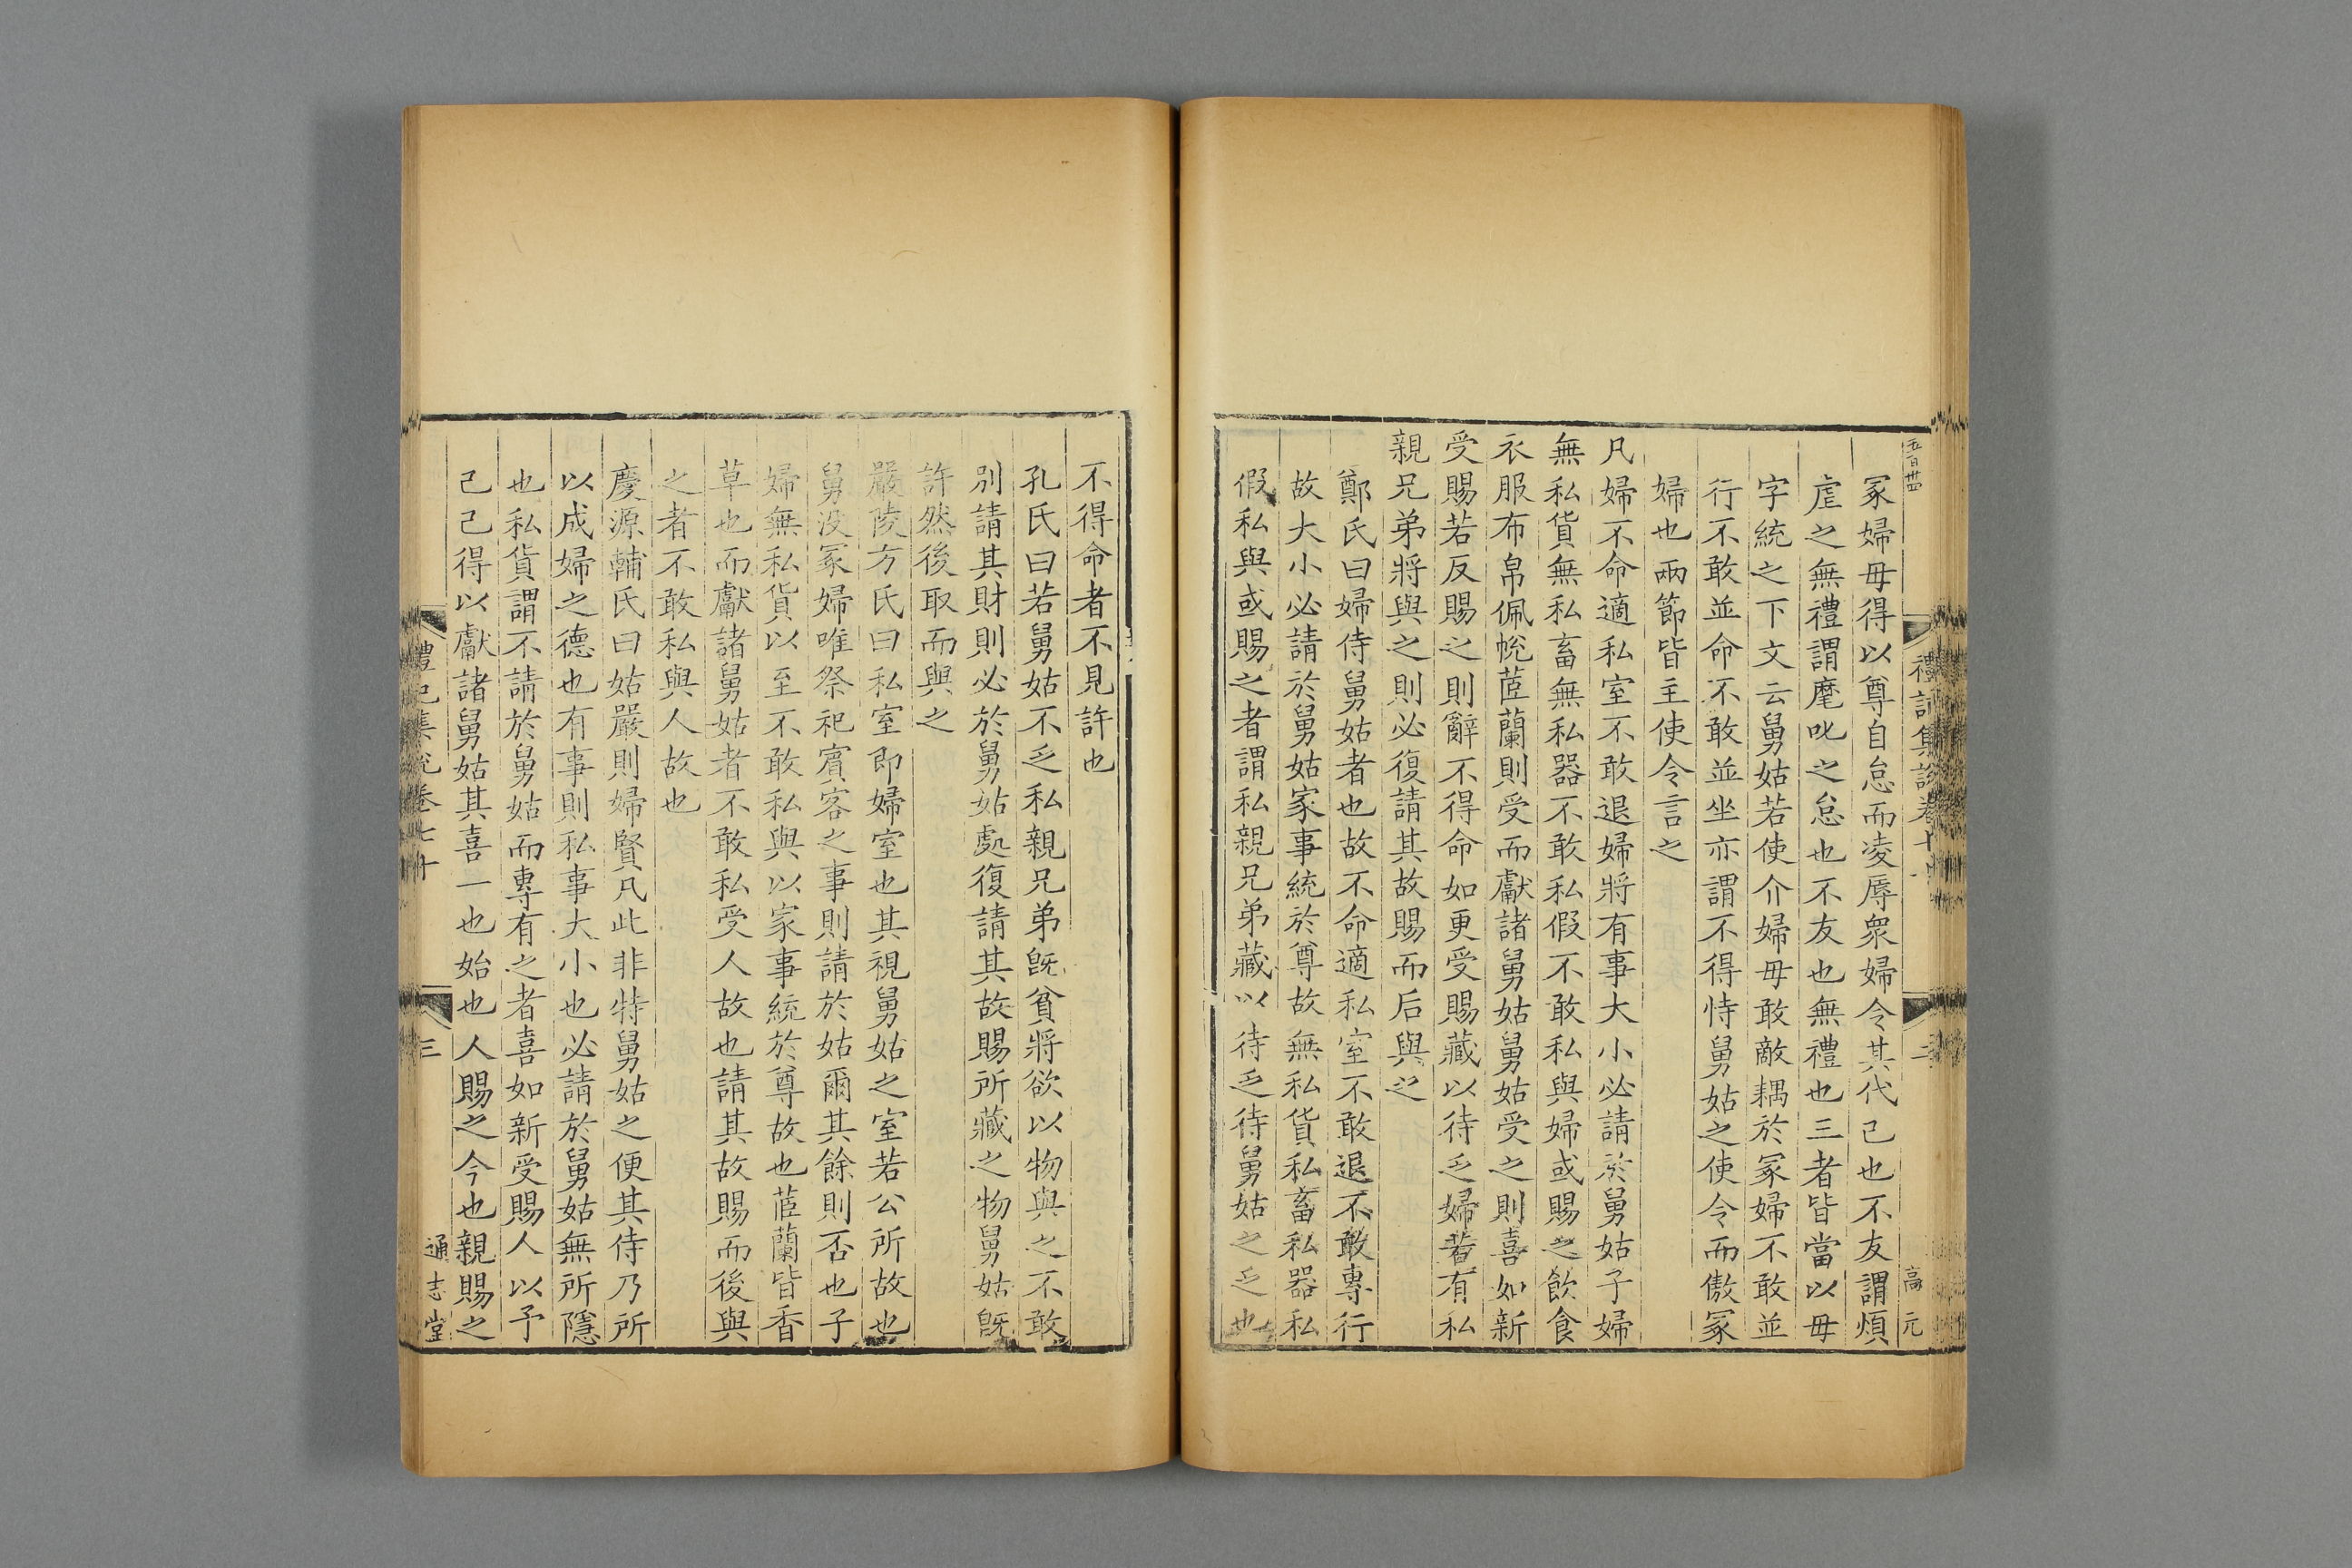 五百卅四
禮記集說卷七十
二
高元
冢婦毋得以尊自怠而凌辱衆婦令其代己也不友謂煩
虐之無禮謂麾叱之怠也不友也無禮也三者皆當以毋
字統之下文云舅姑若使介婦毋敢敵耦於冢婦不敢並
行不敢並命不敢並坐亦謂不得恃舅姑之使令而傲冢
婦也兩節皆主使令言之
凡婦不命適私室不敢退婦將有事大小必請於舅姑子婦
無私貨無私畜無私器不敢私假不敢私與婦或賜之飲食
衣服布帛佩帨茝蘭則受而獻諸舅姑舅姑受之則喜如新
受賜若反賜之則辭不得命如更受賜藏以待乏婦若有私
親兄弟將與之則必復請其故賜而后與之
鄭氏曰婦侍舅姑者也故不命適私室不敢退不敢專行
故大小必請於舅姑家事統於尊故無私貨私畜私器私
假私與或賜之者謂私親兄弟藏以待乏待舅姑之乏也
不得命者不見許也
孔氏曰若舅姑不乏私親兄弟旣貧將欲以物與之不敢
別請其財則必於舅姑處復請其故賜所藏之物舅姑旣
許然後取而與之
嚴陵方氏曰私室即婦室也其視舅姑之室若公所故也
舅没冢婦唯祭祀賓客之事則請於姑爾其餘則否也子
婦無私貨以至不敢私與以家事統於尊故也茝蘭皆香
草也而獻諸舅姑者不敢私受人故也請其故賜而後與
之者不敢私與人故也
慶源輔氏曰姑嚴則婦賢凡此非特舅姑之便其侍乃所
以成婦之德也有事則私事大小也必請於舅姑無所隱
也私貨謂不請於舅姑而專有之者喜如新受賜人以予
己己得以獻諸舅姑其喜一也始也人賜之今也親賜之
禮記集說卷七十
三
通志堂